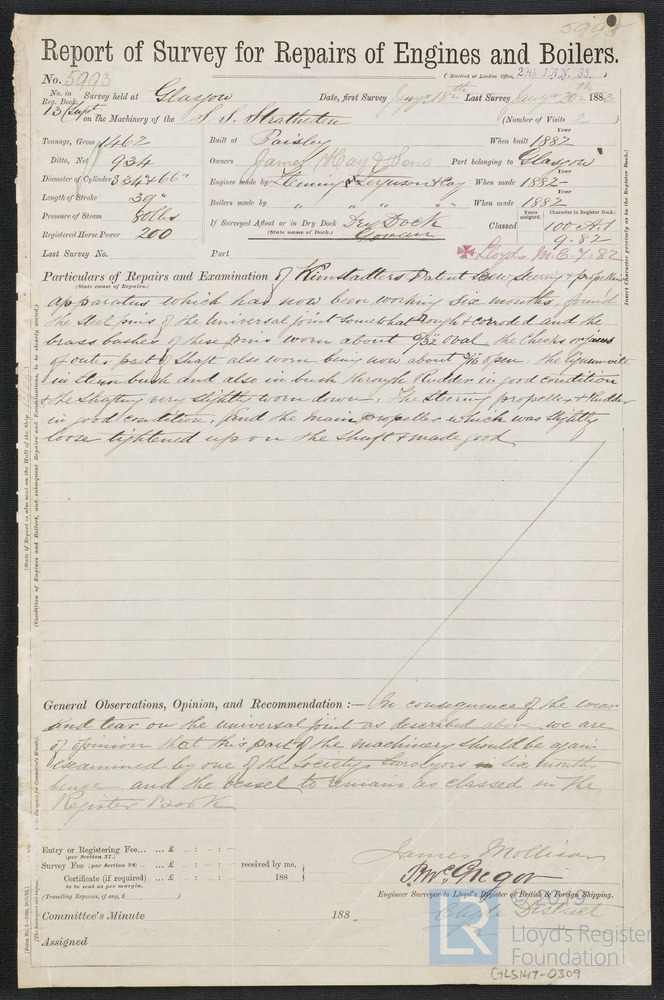 5993
Report of Survey for Repairs of Engines and Boilers.
No. 5993
(Received at London Office, 29th JAN. 83.)
No. in Reg. Book. Survey held at Glasgow Date, first Survey Jany 18th Last Survey Jany 20th 1883
13 Supt on the Machinery of the S. S. Strathendon (Number of Visits 2)
Tonnage, Gross 1462 Built at Paisley When built 1882
Ditto, Net 934 Owners James Hay & Sons Port belonging to Glasgow
Diameter of Cylinder 33 & 66" Engines made by Fleming & Ferguson & Coy When made 1882
Length of Stroke 39" Boilers made by " " " " When made 1882
Pressure of Steam 80 lbs If Surveyed Afloat or in Dry Dock Dry Dock Classed 100 A.1
Registered Horse Power 200 (State name of Dock.) Govan 9.82
Years assigned. Character in Register Book.
Last Survey No. Port Lloyds M.C. 7.82
Insert Character precisely as in the Register Book.]
Particulars of Repairs and Examination of Kunstadters Patent Screw Steering & propelling
(State cause of Repairs.)
apparatus which has now been working six months, found
the steel pins of the Universal joint somewhat rough & corroded and the
brass bushes of these pins worn about 9/32 oval, the cheeks or jaws
of outer part of shaft also worn being now about 7/16 open. The lignumvitæ
in stern bush and also in bush through Rudder in good condition
& the shafting very slightly worn down. The Steering propeller & Rudder
in good condition, found the main propeller which was slightly
loose tightened up on the shaft & made good
(State if Report is also sent on the Hull of the Ship
(Condition of Engines and Boilers, and subsequent Repairs and Examinations, to be clearly stated.)
General Observations, Opinion, and Recommendation :— In consequence of the wear
and tear on the universal joint as described above we are
of opinion that this part of the machinery should be again
examined by one of the Society's Surveyors in six months
hence and the vessel to remain as classed in the
Register Book
Entry or Registering Fee... ... £ : - : -
(per Section 27.)
Survey Fee (per Section 28) ... £ - : - : - received by me,
Certificate (if required) ... £ - : - : - 188
to be sent as per margin.
(Travelling Expenses, if any, £ )
James Mollison
J. McGregor
Engineer Surveyor to Lloyd's Register of British & Foreign Shipping.
Clyde District
Committee's Minute 188 .
Assigned
© 2019
LR
Lloyd's Register
Foundation
GLS147-0309